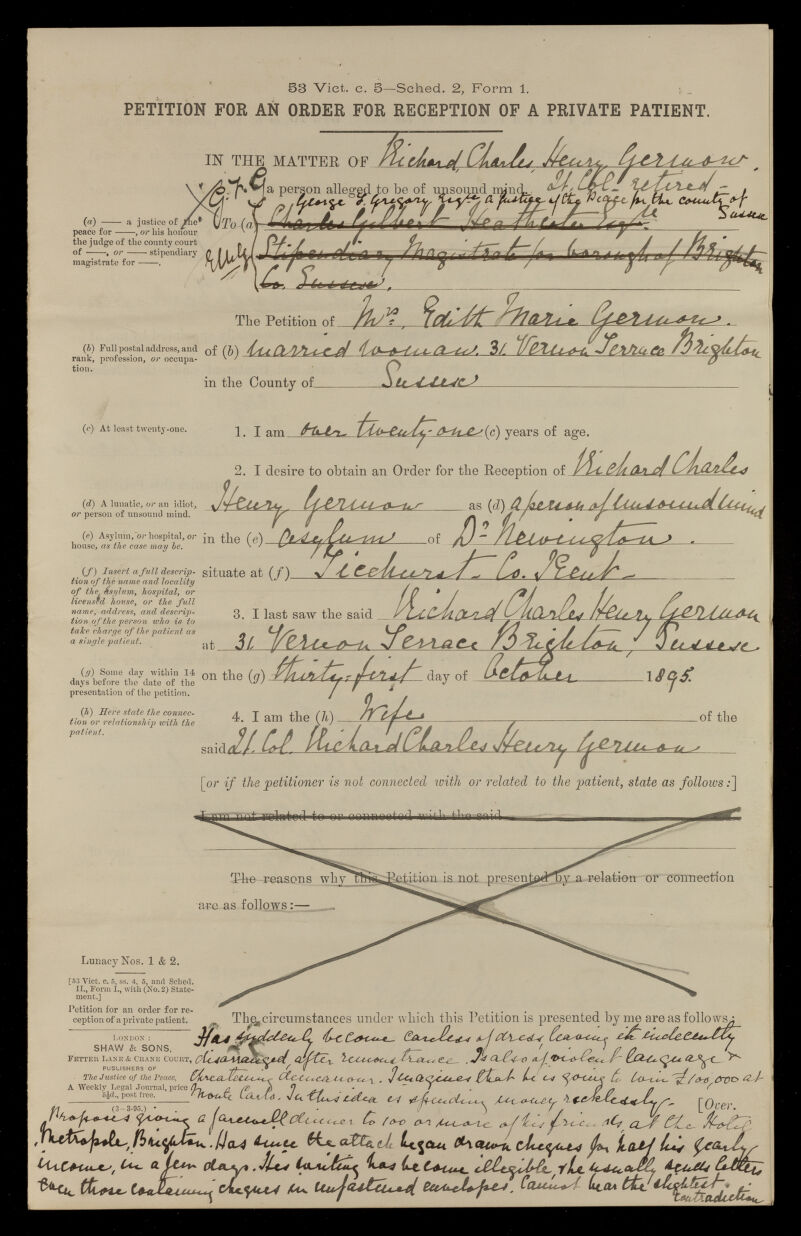 53 Vict. c. 5—Sched. 2, Form 1.
PETITION FOR AN ORDER FOR RECEPTION OF A PRIVATE PATIENT.
IN THE MATTER OF Richard Charles Henry Germon.
G. F. G a person alleged to be of unsound mind. Lt. Col. retired -
George F. Gregory Esqre, a Justice of the Peace for the county of Sussex
(a) —— a justice of the peace for ——, or his honour the judge of the county court of ——, or —— stipendiary magistrate for ——.
To (a) Charles Gilbert Heathcote Esqre.
Stipendiary Magistrate for borough of Brighton
Co. Sussex.
The Petition of Mrs. Edith Marie Germon.
(b) Full postal address, and rank, profession, or occupation.
of (b) married woman. 31 Vernon Terrace Brighton
in the County of Sussex
(c) At least twenty-one.
1. I am over twenty-one (c) years of age.
2. I desire to obtain an Order for the Reception of Richard Charles
(d) A lunatic, or an idiot, or person of unsound mind.
Henry Germon as (d) a person of unsound mind
(e) Asylum, or hospital, or house, as the case may be.
in the (e) asylum of Dr Newington.
(f) Insert a full description of the name and locality of the asylum, hospital, or licensed house, or the full name, address, and description of the person who is to take charge of the patient as a single patient.
situate at (f) Ticehurst - Co. Kent -
3. I last saw the said Richard Charles Henry Germon
at 31 Vernon Terrace Brighton, Sussex
(g) Some day within 14 days before the date of the presentation of the petition.
on the (g) thirty-first day of October 1895.
(h) Here state the connection or relationship with the patient.
4. I am the (h) Wife of the
said Lt. Col. Richard Charles Henry Germon
[or if the petitioner is not connected with or related to the patient, state as follows:]
I am not related to or connected with the said
The reasons why this Petition is not presented by a relation or connection
are as follows:—
Lunacy Nos. 1 & 2.
[53 Vict. c. 5, ss. 4, 5, and Sched. II., Form I., with (No. 2) Statement.]
Petition for an order for reception of a private patient.
LONDON:
SHAW & SONS,
FETTER LANE & CRANE COURT,
PUBLISHERS OF
The Justice of the Peace,
A Weekly Legal Journal, price 5½d., post free.
(3—3-95.)
The circumstances under which this Petition is presented by me are as follows:
Has suddenly become careless of dress, leaving it indecently
disarranged, after remonstrance. Is also of violent language &
threatening demeanour. Imagines that he is going to win £100,000 at
Monte Carlo. In this idea is spending money recklessly -
[Over.
Proposes giving a farewell dinner to 100 or more of his friends, at the Hotel
Metropole, Brighton. Has since the attack began drawn cheques for half his yearly
income, in a few days. His writing has become illegible, & he usually sends letters
even those containing cheques in unfastened envelopes. Cannot bear the slightest
contradiction